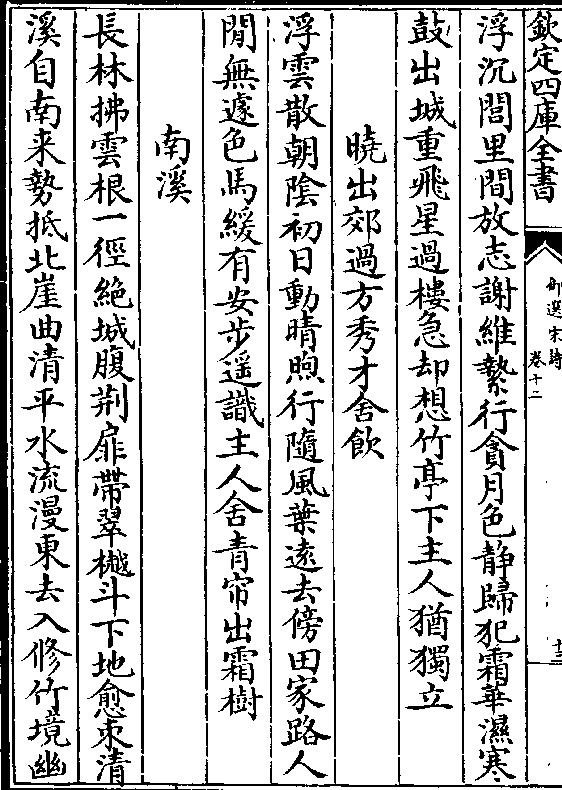 欽定四庫全書
御選宋詩
卷十二
十三
浮沉閭里間放志謝維縶行貪月色静歸犯霜華濕寒
鼓出城重飛星過樓急却想竹亭下主人猶獨立
曉出郊過方秀才舍飲
浮雲散朝陰初日動晴煦行隨風葉遠去傍田家路人
閒無遽色馬緩有安步遥識主人舍青帘出霜樹
南溪
長林拂雲根一徑絶城腹荆扉帶翠樾斗下地愈束清
溪自南来勢抵北崖曲清平水流漫東去入修竹境幽